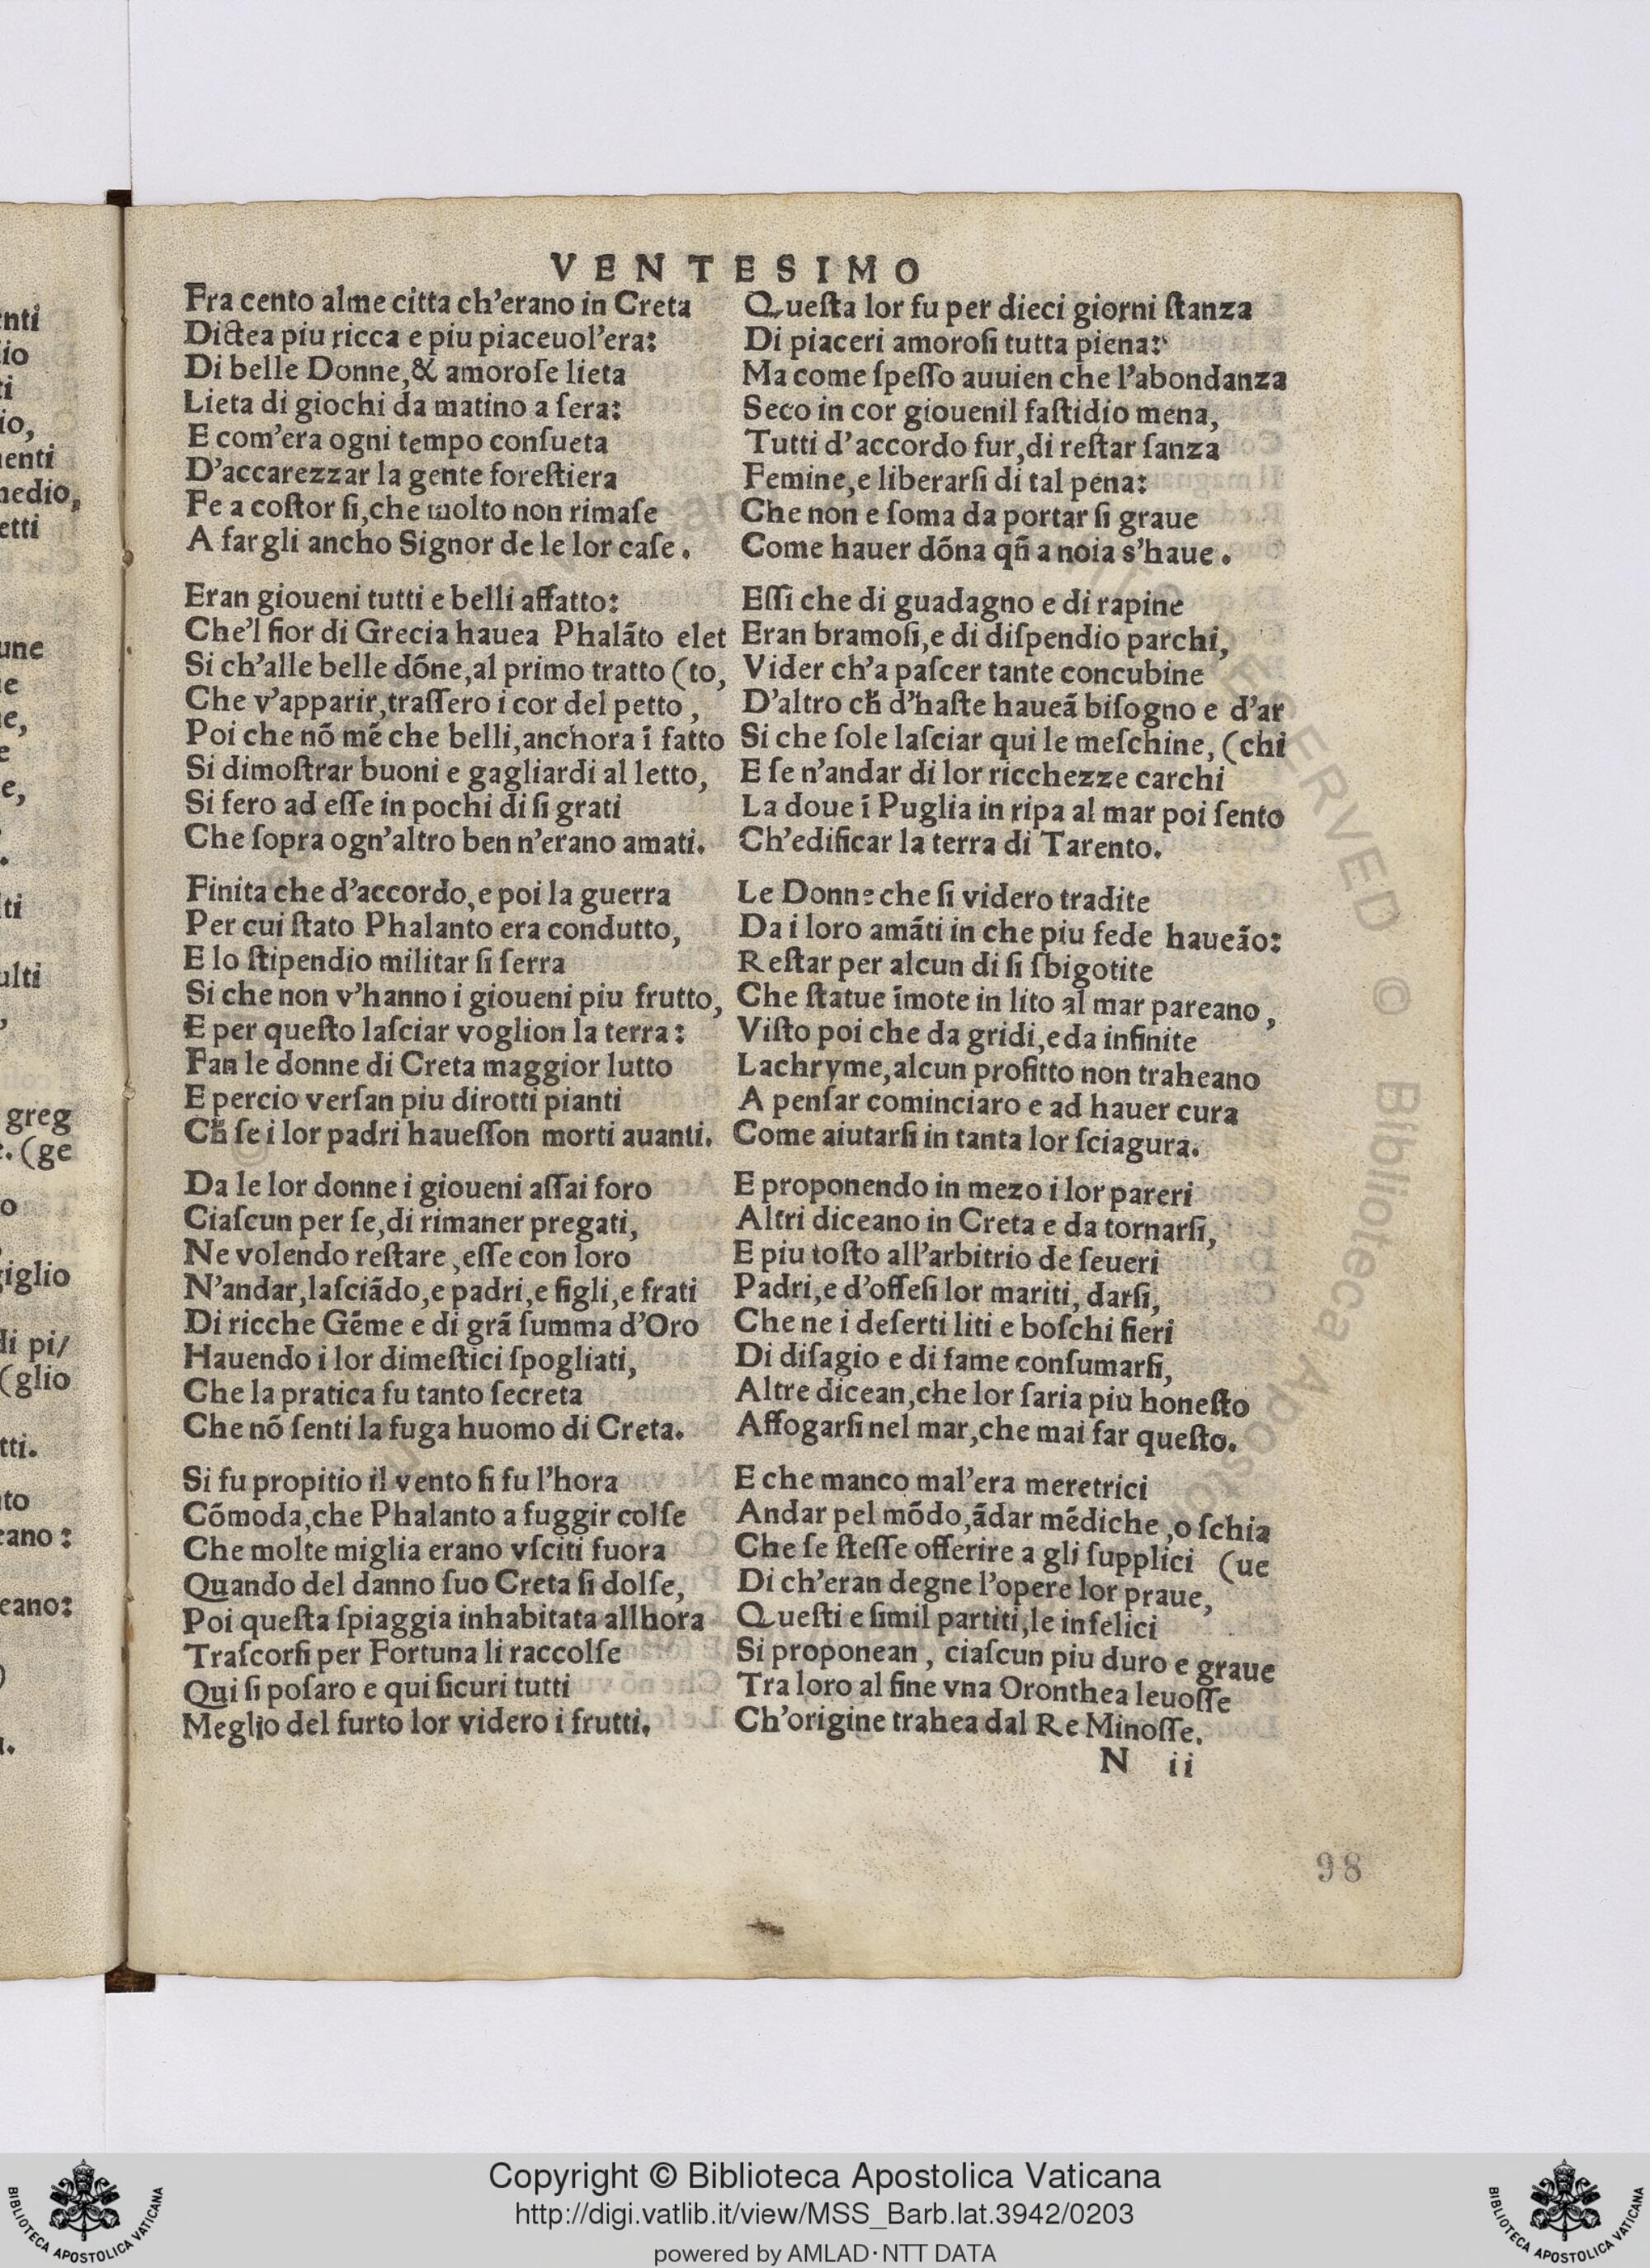 VENTESIMO
Fra cento alme citta ch'erano in Creta
Dictea piu ricca e piu piaceuol'era:
Di belle Donne,& amoroſe lieta
Lieta di giochi da matino a ſera:
E com'era ogni tempo conſueta
D'accarezzar la gente foreſtiera
Fe a coſtor ſi,che molto non rimaſe
A far gli ancho Signor de le lor caſe.
Eran gioueni tutti e belli affatto:
Che'l fior di Grecia hauea Phalãto elet
Si ch'alle belle dõne,al primo tratto (to,
Che v'apparir,traſſero i cor del petto,
Poi che nõ mẽ che belli,anchora ĩ fatto
Si dimoſtrar buoni e gagliardi al letto,
Si fero ad eſſe in pochi di ſi grati
Che ſopra ogn'altro ben n'erano amati.
Finita che d'accordo,e poi la guerra
Per cui ſtato Phalanto era condutto,
E lo ſtipendio militar ſi ſerra
Si che non v'hanno i gioueni piu frutto,
E per queſto laſciar voglion la terra:
Fan le donne di Creta maggior lutto
E percio verſan piu dirotti pianti
Cħ ſe i lor padri haueſſon morti auanti.
Da le lor donne i gioueni aſſai foro
Ciaſcun per ſe,di rimaner pregati,
Ne volendo reſtare,eſſe con loro
N'andar,laſciãdo,e padri,e figli,e frati
Di ricche Gẽme e di grã ſumma d'Oro
Hauendo i lor dimeſtici ſpogliati,
Che la pratica fu tanto ſecreta
Che nõ ſenti la fuga huomo di Creta.
Si fu propitio il vento ſi fu l'hora
Cõmoda,che Phalanto a fuggir colſe
Che molte miglia erano vſciti fuora
Quando del danno ſuo Creta ſi dolſe,
Poi queſta ſpiaggia inhabitata allhora
Traſcorſi per Fortuna li raccolſe
Qui ſi poſaro e qui ſicuri tutti
Meglio del furto lor videro i frutti.
Queſta lor fu per dieci giorni ſtanza
Di piaceri amoroſi tutta piena:
Ma come ſpeſſo auuien che l'abondanza
Seco in cor giouenil faſtidio mena,
Tutti d'accordo fur,di reſtar ſanza
Femine,e liberarſi di tal pena:
Che non e ſoma da portar ſi graue
Come hauer dõna qñ a noia s'haue.
Eſſi che di guadagno e di rapine
Eran bramoſi,e di diſpendio parchi,
Vider ch'a paſcer tante concubine
D'altro cħ d'haſte haueã biſogno e d'ar
Si che ſole laſciar qui le meſchine, (chi
E ſe n'andar di lor ricchezze carchi
La doue ĩ Puglia in ripa al mar poi ſento
Ch'edificar la terra di Tarento.
Le Donne che ſi videro tradite
Da i loro amãti in che piu fede haueão:
Reſtar per alcun di ſi ſbigotite
Che ſtatue ĩmote in lito al mar pareano,
Viſto poi che da gridi,e da infinite
Lachryme,alcun profitto non traheano
A penſar cominciaro e ad hauer cura
Come aiutarſi in tanta lor ſciagura.
E proponendo in mezo i lor pareri
Altri diceano in Creta e da tornarſi,
E piu toſto all'arbitrio de ſeueri
Padri,e d'offeſi lor mariti, darſi,
Che ne i deſerti liti e boſchi fieri
Di diſagio e di fame conſumarſi,
Altre dicean,che lor ſaria piu honeſto
Affogarſi nel mar,che mai far queſto.
E che manco mal'era meretrici
Andar pel mõdo,ãdar mẽdiche,o ſchia
Che ſe ſteſſe offerire a gli ſupplici (ue
Di ch'eran degne l'opere lor praue,
Queſti e ſimil partiti,le infelici
Si proponean, ciaſcun piu duro e graue
Tra loro al fine vna Oronthea leuoſſe
Ch'origine trahea dal Re Minoſſe.
N ii
98
Copyright © Biblioteca Apostolica Vaticana
http://digi.vatlib.it/view/MSS_Barb.lat.3942/0203
powered by AMLAD·NTT DATA